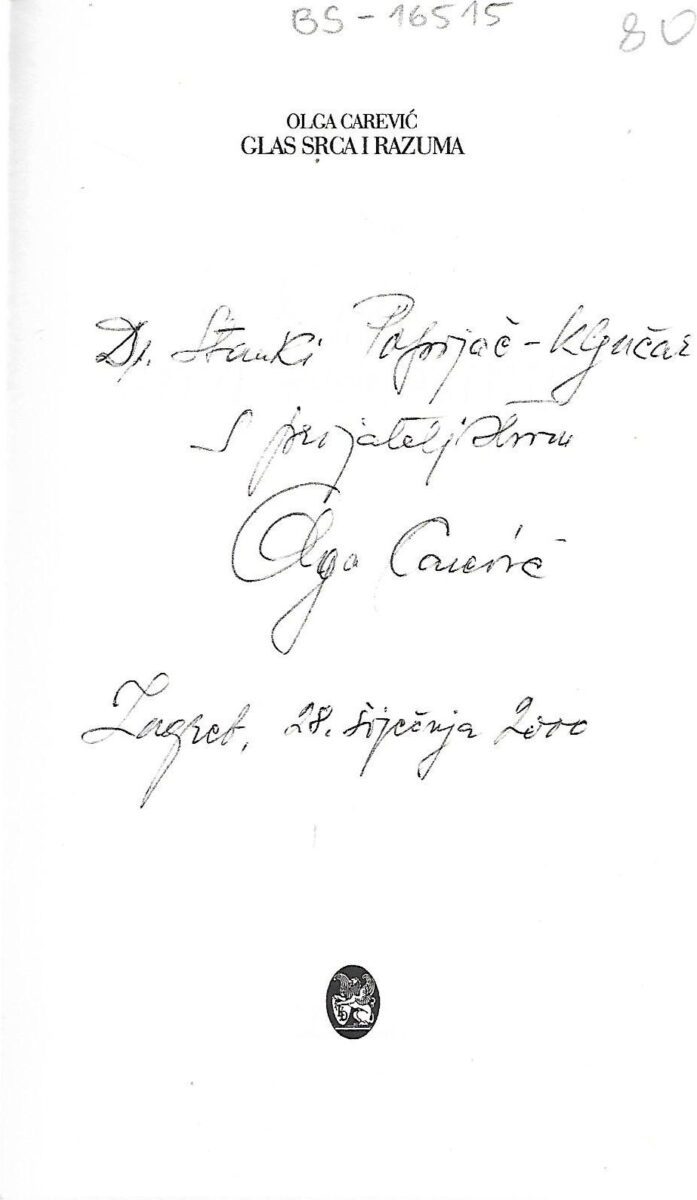 BS-16515
80
OLGA CAREVIĆ
GLAS SRCA I RAZUMA
Dr. Stanki - Ključar
S prijateljstvom
Olga Carević
Zagreb, 28. siječnja 2000